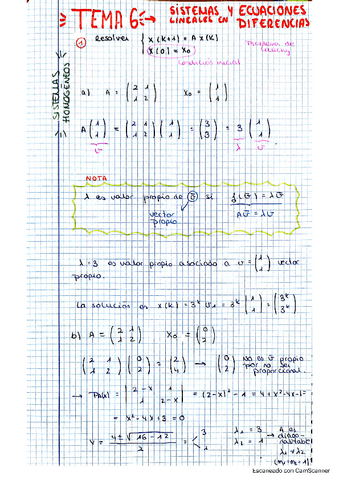 TEMA 6 → SISTEMAS Y ECUACIONES
LINEALES EN DIFERENCIAS
SISTEMAS HOMOGÉNEOS
① Resolver { x(k+1) = A x(k)
x(0) = x₀
condición inicial
a) A = (2 1; 1 2) x₀ = (1; 1)
A (1; 1) = (2 1; 1 2) (1; 1) = (3; 3) = 3 (1; 1)
v̄ λ v̄
NOTA
λ es valor propio de v̄ si f(v̄) = λv̄
vector propio Av̄ = λv̄
λ = 3 es valor propio asociado a v = (1; 1) vector
propio.
La solución es x(k) = 3ᵏ v₁ = 3ᵏ (1; 1) = (3ᵏ; 3ᵏ)
b) A = (2 1; 1 2) x₀ = (0; 2)
(2 1; 1 2) (0; 2) = (2; 4) → (0; 2) No es v̄ propio
por no ser
proporcional.
→ P(λ) = |2-x 1; 1 2-x| = (2-x)² - 1 = 4 + x² - 4x - 1 =
= x² - 4x + 3 = 0
x = (4 ± √(16 - 12)) / 2 = < 3 1
λ₁ = 3 λ₂ = 1 → A es diagonalizable
λ₁ ≠ λ₂
Escaneado con CamScanner